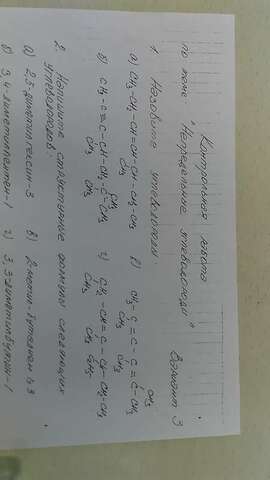 Контрольная работа
по теме: „Непредельные углеводороды" Вариант 3
1. Назовите углеводороды
а) CH₃-CH-CH=CH-CH-CH₂-CH₃
CH₃
в) CH₃-C=C-C=C-CH₃
CH₃ CH₃ CH₃
б) CH₃-C≡C-CH-CH₂-C=CH₂
CH₃ CH₃
г) CH₂-CH=C-CH-CH₂-CH₃
CH₃ CH₃
2. Напишите структурные формулы следующих
углеводородов:
а) 2,5-диметилгексин-3
в) 2-метил-бутадиен 1,3
б) 3,4-диметилпентен-1
г) 3,3-диметилбутин-1